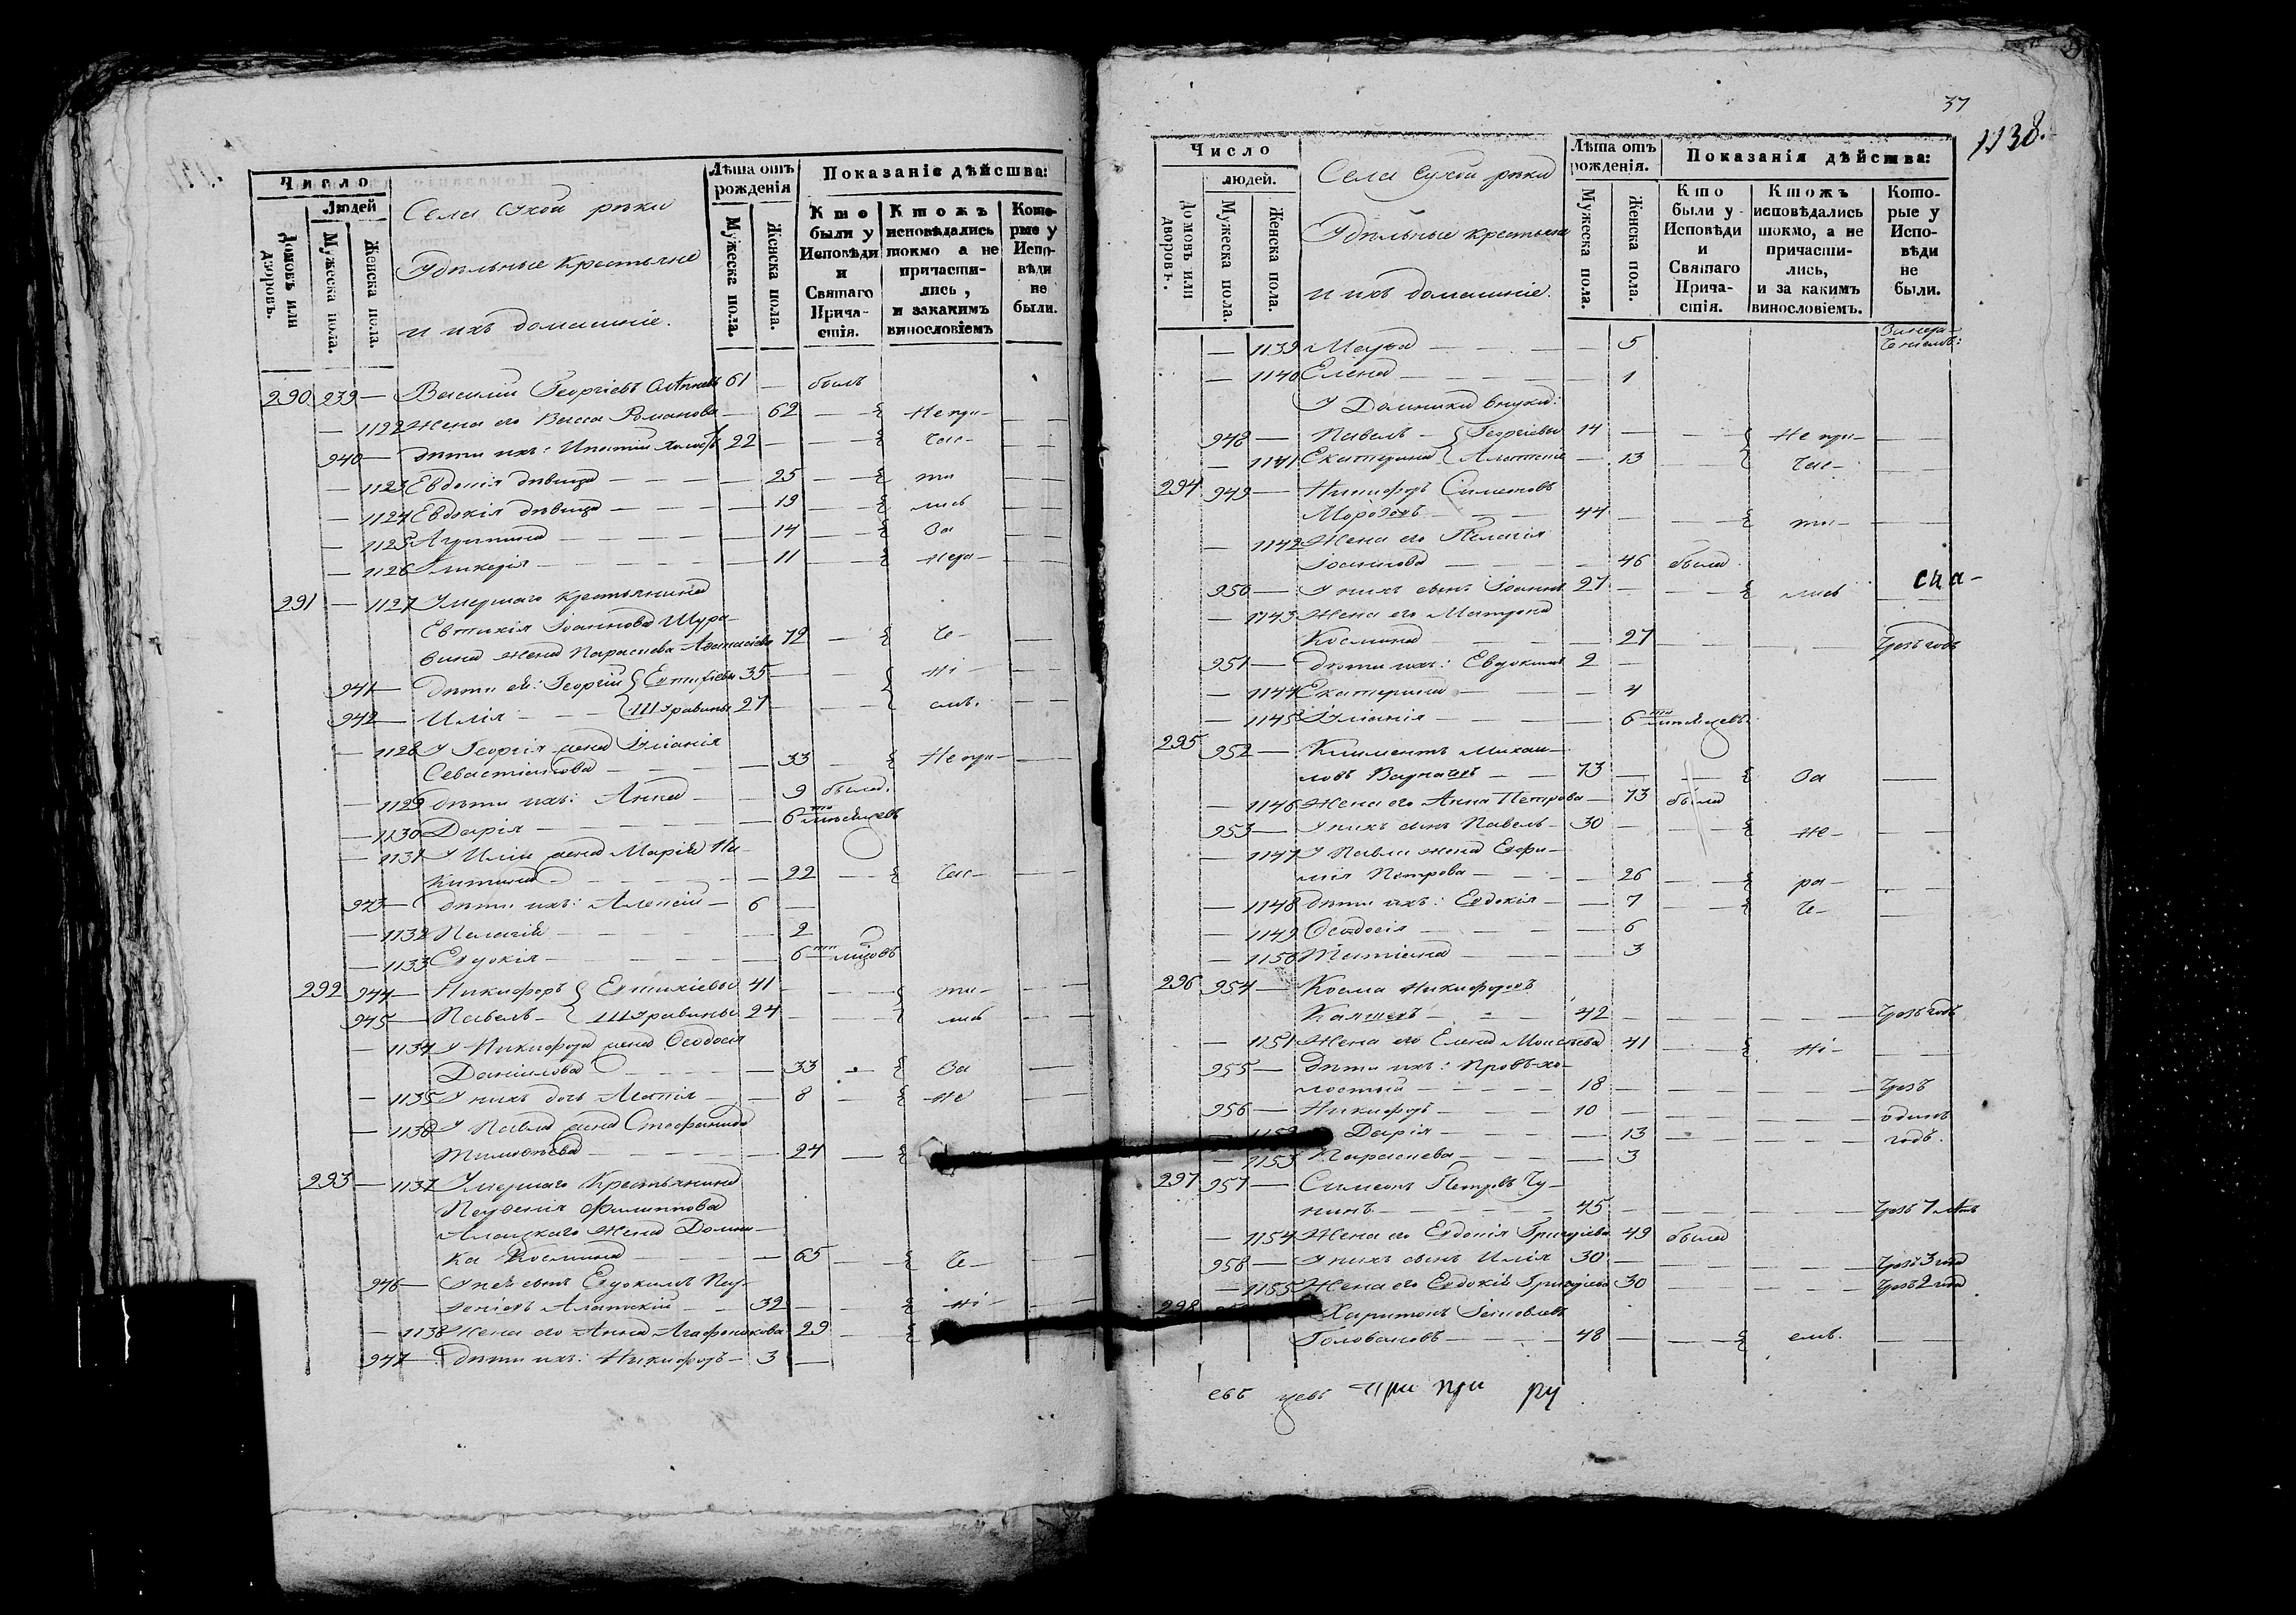 Число
Людей
Домовъ или дворовъ.
Мужеска пола.
Женска пола.
Села Сухой рѣки
Удѣльные крестьяне
и ихъ домашніе.
Лѣта отъ рожденія
Мужеска пола.
Женска пола.
Показаніе дѣйства:
Кто были у Исповѣди и Святаго Прича-стія.
Ктожъ исповѣдались токмо а не причасти-лись, и закакимъ винословіемъ
Кото-рые у Испо-вѣди не были.
290 939 — Василій Георгіевъ 61 — былъ
— 1122 Жена его Васса Романова — 62 — Не при-
940 — дѣти ихъ: Ипатій холостъ 22 — час-
— 1123 Евдокія дѣвица — 25 — ти
— 1124 Евдокія дѣвица — 19 — лись
— 1125 Агрипина — 14 — За
— 1126 Гликерія — 11 — нера-
291 — 1127 Умершаго крестьянина
Евтихія Іоаннова Шура-
вина жена Параскева 72 — че-
941 — Дѣти ея: Георгій Евтихіевы 35 — ні-
942 — Илія — Шуравины 27 — емъ.
— 1128 У Георгія жена Іуліанія
Севастіанова — 33 — Не при-
— 1129 дѣти ихъ: Анна — 9 была.
— 1130 Дарія — 6ти мѣсяцевъ
— 1131 У Иліи жена Марія Ни-
китина — 22 — час-
943 — дѣти ихъ: Алексій — 6 —
— 1132 Пелагія — 2
— 1133 Евдокія — 6ти мѣсцовъ
292 944 — Никифоръ Евтихіевы 41 — ти-
945 — Павелъ — Шуравины 24 — лись
— 1134 У Никифора жена Ѳеодосія
Даніилова — 33 — За
— 1135 У нихъ дочь — 8 — не
— 1136 У Павла жена Стефанида
Тимоѳеева — 24 —
293 — 1137 Умершаго Крестьянина
Филиппова
жена Домни-
ка Космина — 65 — че-
946 — У нея сынъ Евдокимъ
39 — ні-
— 1138 Жена его Анна Агафоникова 29 —
947 — Дѣти ихъ: Никифоръ — 3 —
37
1138.
Число
людей.
Домовъ или дворовъ.
Мужеска пола.
Женска пола.
Села Сухой рѣки
Удѣльные крестьяне
и ихъ домашніе.
Лѣта отъ рожденія.
Мужеска пола.
Женска пола.
Показанія дѣйства:
Кто были у Исповѣди и Святаго Прича-стія.
Ктожъ исповѣдались токмо, а не причасти-лись, и за какимъ винословіемъ.
Кото-рые у Испо-вѣди не были.
— 1139 Мавра — 5
— 1140 Елена — 1
У Домники внуки:
948 — Павелъ — Георгіевы 14 — Не при-
— 1141 Екатерина — 13 — час-
294 949 — Никифоръ Симеоновъ
Морозовъ — 44 — ти-
— 1142 Жена его Пелагія
Іоаннова — 46 была
950 — У нихъ сынъ Іоаннъ 27 — лись
сиа-
— 1143 Жена его Матрона
Космина — 27 — Чрезъ годъ
951 — Дѣти ихъ: Евдокимъ 2 —
— 1144 Екатерина — 4
— 1145 Іуліанія — 6ти мѣсяцевъ.
295 952 — Климентъ Михаи-
ловъ — 73 — За
— 1146 Жена его Анна Петрова — 73 была
953 — У нихъ сынъ Павелъ — 30 — не-
— 1147 У Павла жена Евфи-
мія Петрова — 26 — ра-
— 1148 дѣти ихъ: Евдокія — 7 — че-
— 1149 Ѳеодосія — 6
— 1150 Татіана — 3
296 954 — Косма Никифоровъ
42 — Чрезъ годъ
— 1151 Жена его Елена Моисѣева 41 — ні-
955 — Дѣти ихъ: Провъ хо-
лостый — 18 — Чрезъ
956 — Никифоръ — 10 — одинъ
Дарія — 13 — годъ.
— 1153 Параскева — 3
297 957 — Симеонъ Петровъ Чу-
нинъ — 45 — Чрезъ 7 лѣтъ
— 1154 Жена его Евдокія Григоріева 49 была
958 — У нихъ сынъ Илія 30 — Чрезъ 3 года
— 1155 Жена его Евдокія Григоріева 30 — Чрезъ 2 года
298 Харитонъ Іаковлевъ
Головановъ — 48 — емъ.
евъ цевъ при при ру